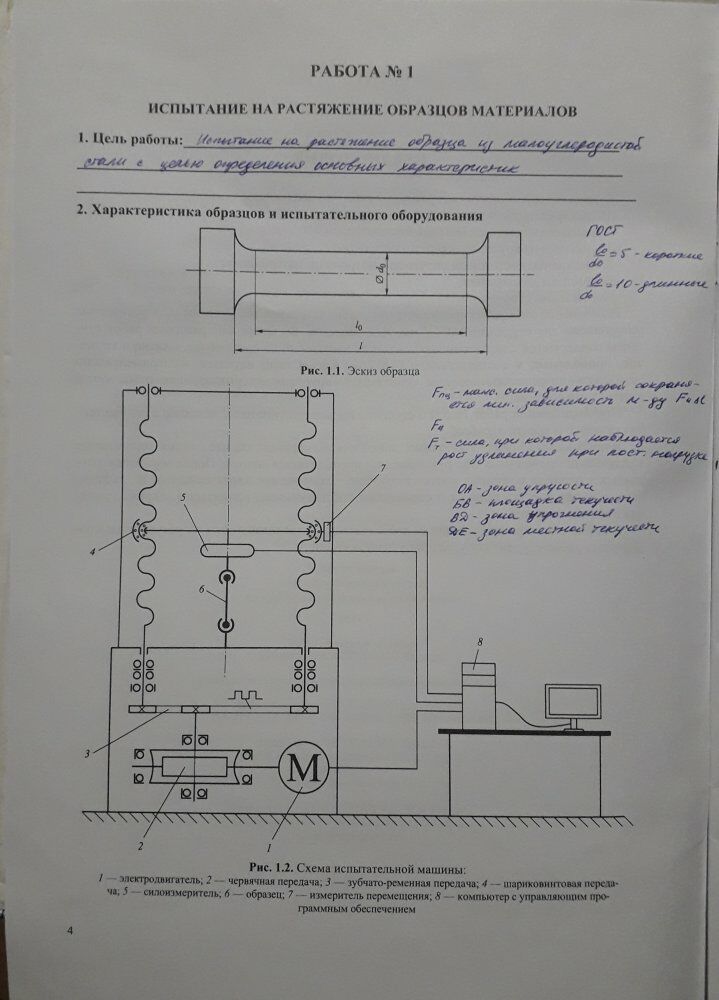 РАБОТА № 1
ИСПЫТАНИЕ НА РАСТЯЖЕНИЕ ОБРАЗЦОВ МАТЕРИАЛОВ
1. Цель работы: Испытание на растяжение образца из малоуглеродистой
стали с целью определения основных характеристик
2. Характеристика образцов и испытательного оборудования
ГОСТ
l₀/d₀ = 5 - короткие
l₀/d₀ = 10 - длинные
Ø d₀
l₀
l
Рис. 1.1. Эскиз образца
Fпц - макс. сила, для которой сохраня-
ется лин. зависимость м-ду F и Δl
Fт - сила, при которой наблюдается
рост удлинения при пост. нагрузке
ОА - зона упругости
БВ - площадка текучести
ВД - зона упрочнения
ДЕ - зона местной текучести
5
7
4
6
8
3
М
2
1
Рис. 1.2. Схема испытательной машины:
1 — электродвигатель; 2 — червячная передача; 3 — зубчато-ременная передача; 4 — шариковинтовая переда-
ча; 5 — силоизмеритель; 6 — образец; 7 — измеритель перемещения; 8 — компьютер с управляющим про-
граммным обеспечением
4